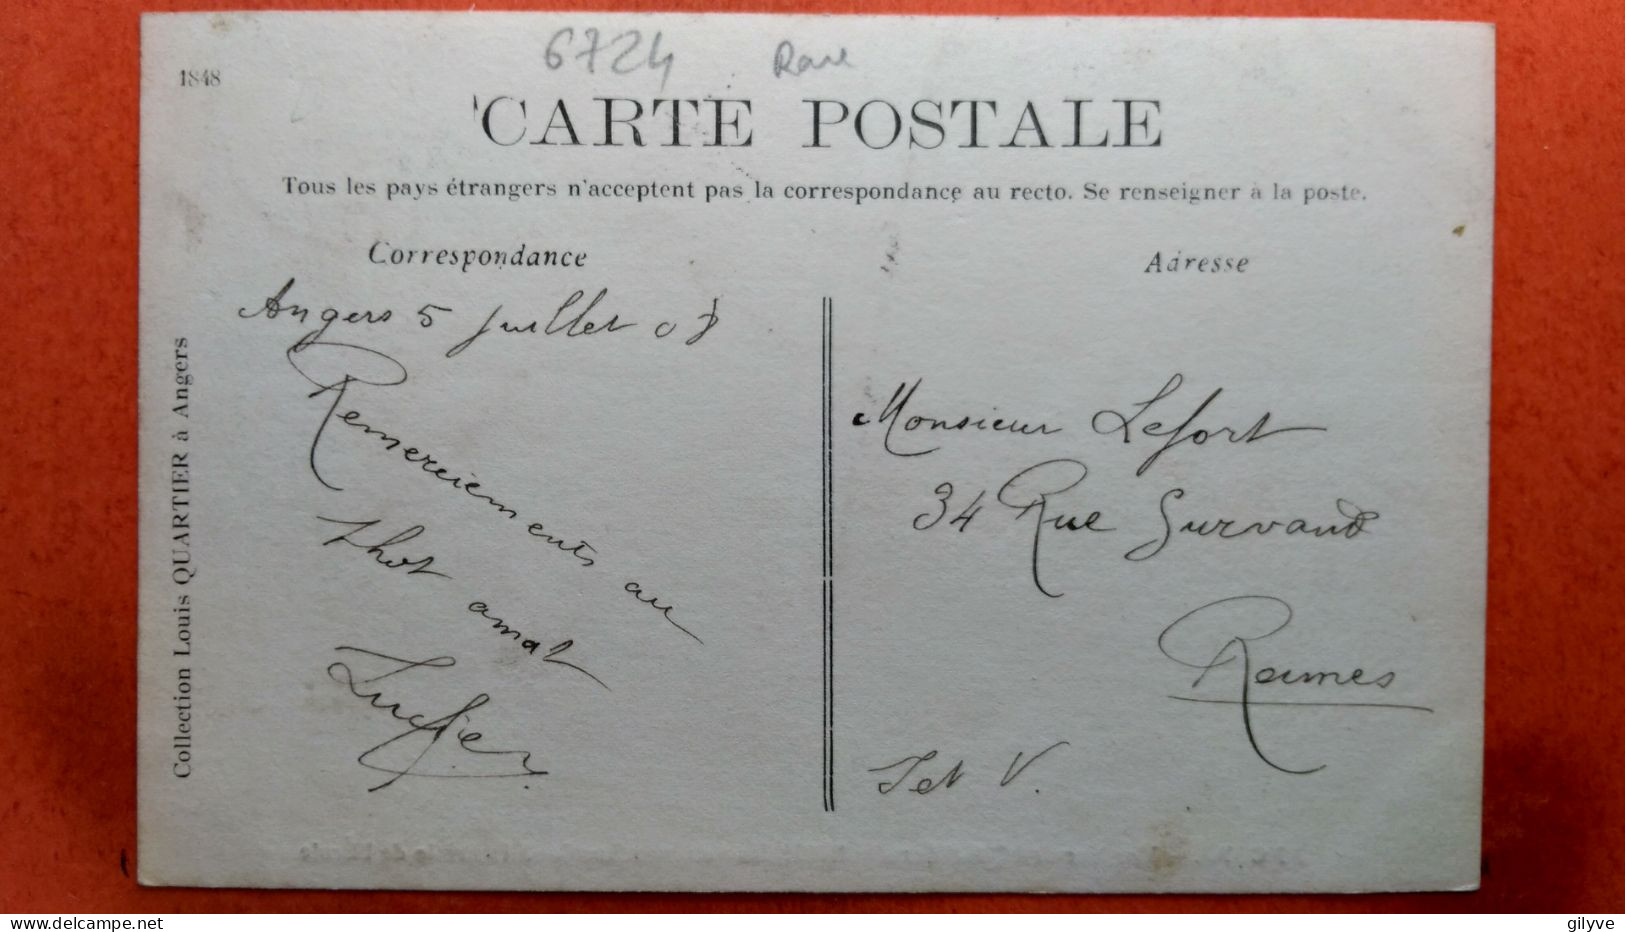 6724 Rare
1848
CARTE POSTALE
Tous les pays étrangers n'acceptent pas la correspondance au recto. Se renseigner à la poste.
Correspondance
Angers 5 juillet 08
Remerciements au
thot amat
Collection Louis QUARTIER à Angers
Adresse
Monsieur Lefort
34 Rue Survand
Rennes
delcampe.net
gilyve